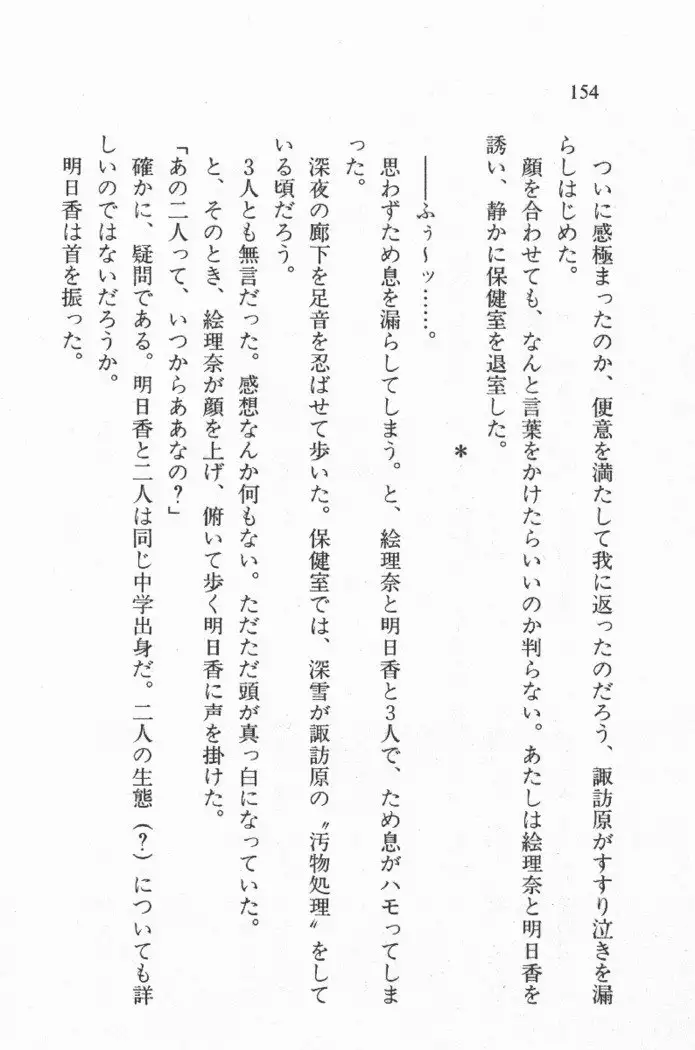 154
ついに感極まったのか、便意を満たして我に返ったのだろう、諏訪原がすすり泣きを漏
らしはじめた。
顔を合わせても、なんと言葉をかけたらいいのか判らない。あたしは絵理奈と明日香を
誘い、静かに保健室を退室した。
＊
――ふぅ～ッ……。
思わずため息を漏らしてしまう。と、絵理奈と明日香と3人で、ため息がハモってしま
った。
深夜の廊下を足音を忍ばせて歩いた。保健室では、深雪が諏訪原の〝汚物処理〟をして
いる頃だろう。
3人とも無言だった。感想なんか何もない。ただただ頭が真っ白になっていた。
と、そのとき、絵理奈が顔を上げ、俯いて歩く明日香に声を掛けた。
「あの二人って、いつからああなの？」
確かに、疑問である。明日香と二人は同じ中学出身だ。二人の生態（？）についても詳
しいのではないだろうか。
明日香は首を振った。